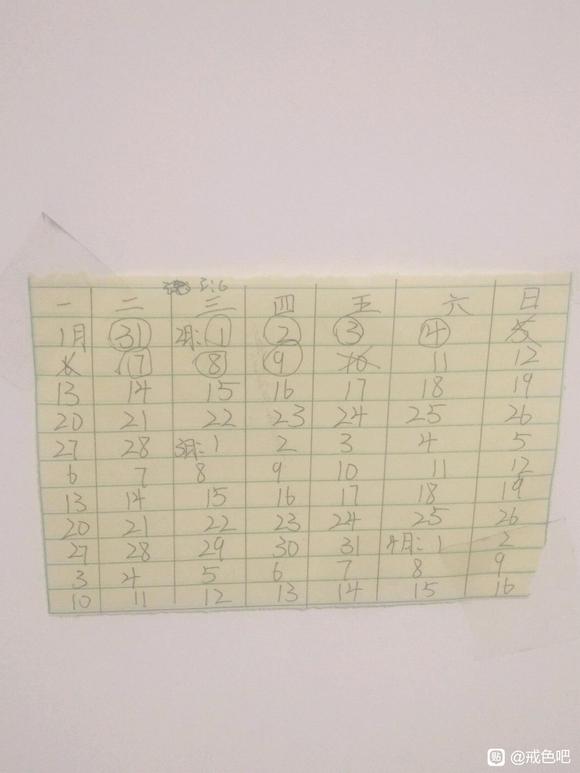 一 二 三 四 五 六 日
1月 31 2月:1 2 3 4 5
6 7 8 9 10 11 12
13 14 15 16 17 18 19
20 21 22 23 24 25 26
27 28 3月:1 2 3 4 5
6 7 8 9 10 11 12
13 14 15 16 17 18 19
20 21 22 23 24 25 26
27 28 29 30 31 4月:1 2
3 4 5 6 7 8 9
10 11 12 13 14 15 16
贴 @戒色吧